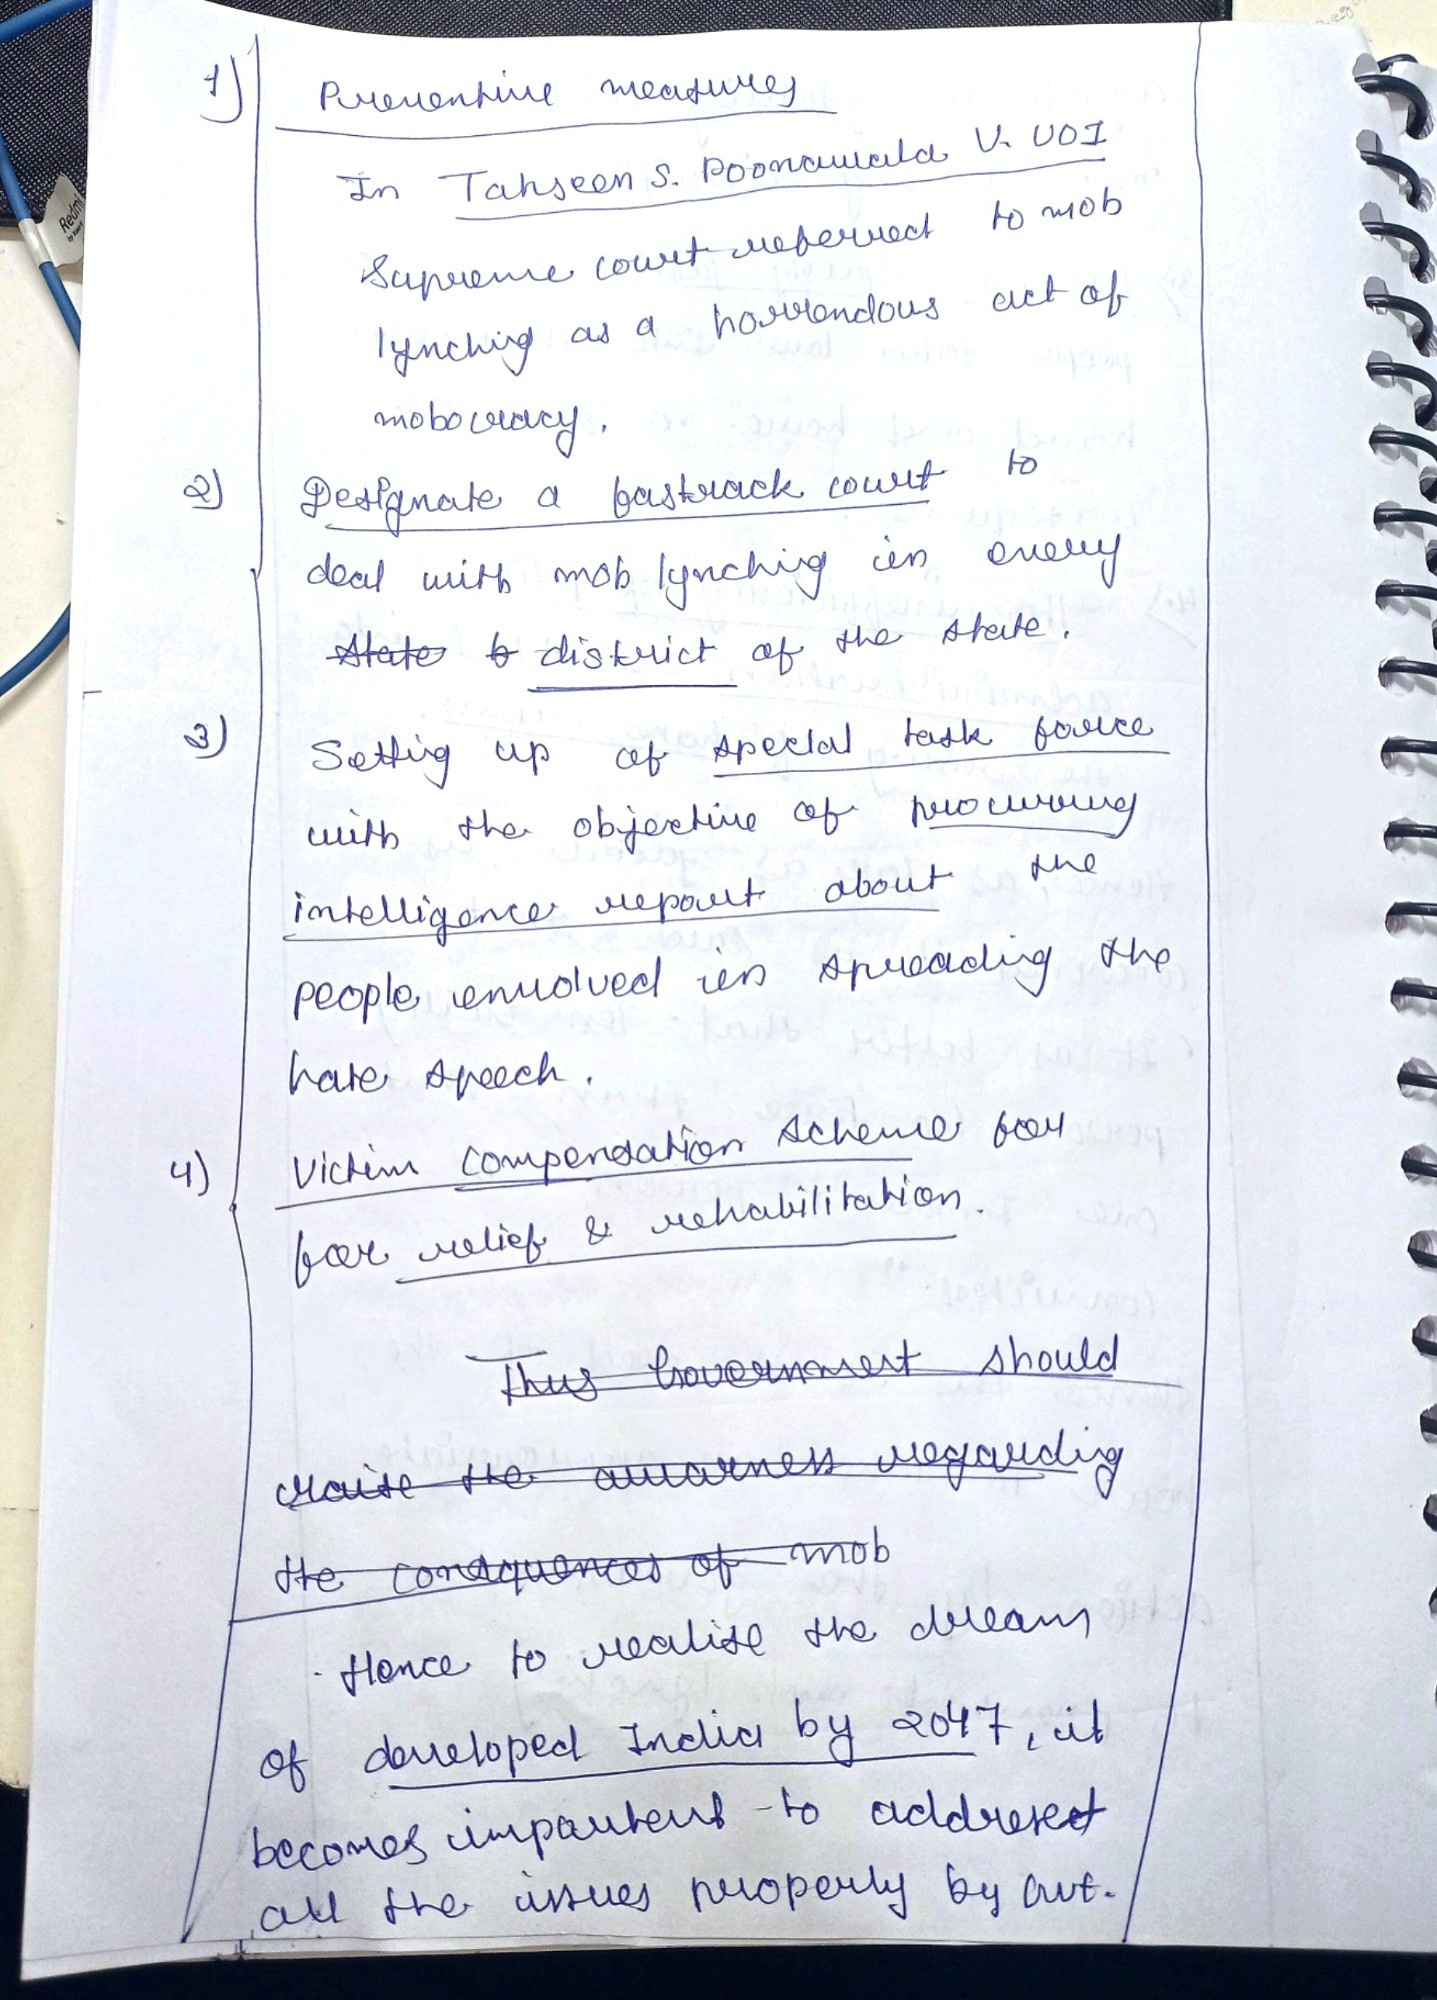 1) Preventive measures
In Tahseen S. Poonawala V. UOI
Supreme court referred to mob
lynching as a horrendous act of
mobocracy.
2) Designate a fastrack court to
deal with mob lynching in every
state & district of the state.
3) Setting up of special task force
with the objective of procuring
intelligence report about the
people involved in spreading the
hate speech.
4) Victim compensation scheme for
for relief & rehabilitation.
Thus Government should
raise the awarness regarding
the consquences of mob
Hence to realise the dream
of developed India by 2047, it
becomes important to address
all the issues properly by Govt.
Redmi